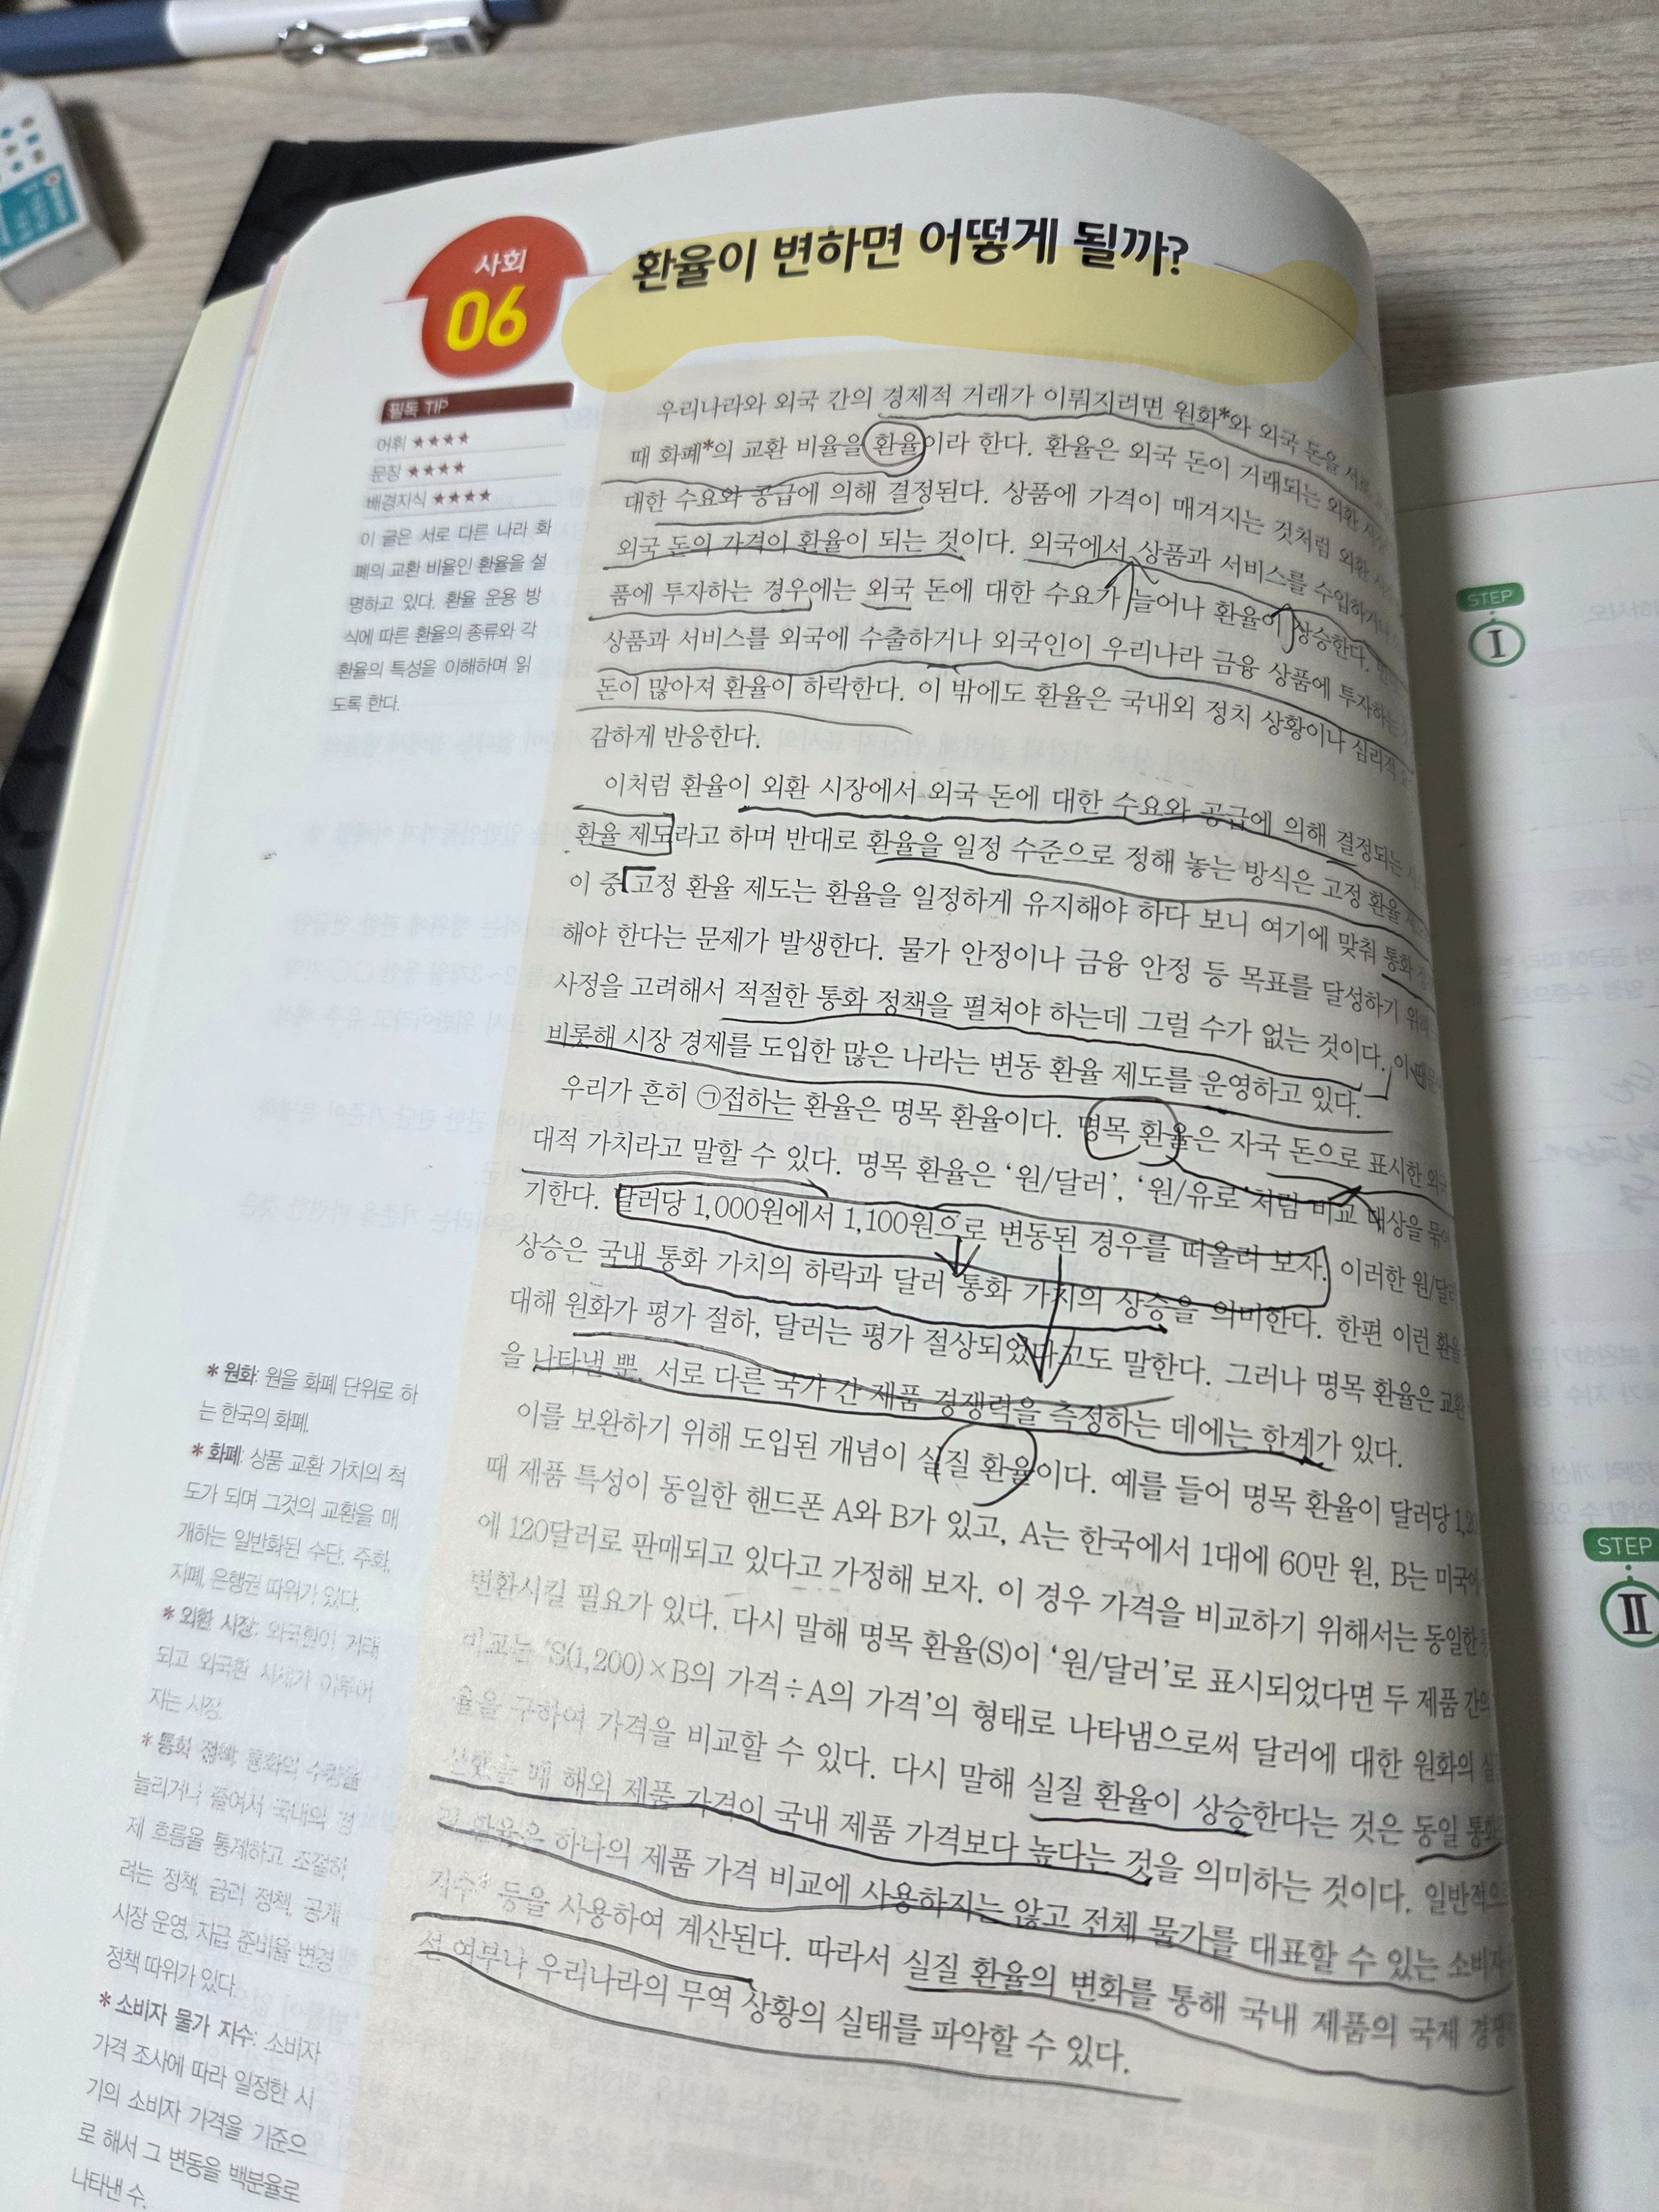 사회
06
환율이 변하면 어떻게 될까?
필독 TIP
어휘 ★★★★
문장 ★★★★
배경지식 ★★★★
이 글은 서로 다른 나라 화
폐의 교환 비율인 환율을 설
명하고 있다. 환율 운용 방
식에 따른 환율의 종류와 각
환율의 특성을 이해하며 읽
도록 한다.
우리나라와 외국 간의 경제적 거래가 이뤄지려면 원화*와 외국 돈을 서로
때 화폐*의 교환 비율을 환율이라 한다. 환율은 외국 돈이 거래되는 외환
대한 수요와 공급에 의해 결정된다. 상품에 가격이 매겨지는 것처럼 외환
외국 돈의 가격이 환율이 되는 것이다. 외국에서 상품과 서비스를 수입하거나
품에 투자하는 경우에는 외국 돈에 대한 수요가 늘어나 환율이 상승한다.
상품과 서비스를 외국에 수출하거나 외국인이 우리나라 금융 상품에 투자하는
돈이 많아져 환율이 하락한다. 이 밖에도 환율은 국내외 정치 상황이나 심리적
감하게 반응한다.
이처럼 환율이 외환 시장에서 외국 돈에 대한 수요와 공급에 의해 결정되는
환율 제도라고 하며 반대로 환율을 일정 수준으로 정해 놓는 방식은 고정 환율
이 중 고정 환율 제도는 환율을 일정하게 유지해야 하다 보니 여기에 맞춰 통화
해야 한다는 문제가 발생한다. 물가 안정이나 금융 안정 등 목표를 달성하기 위해
사정을 고려해서 적절한 통화 정책을 펼쳐야 하는데 그럴 수가 없는 것이다. 이
비롯해 시장 경제를 도입한 많은 나라는 변동 환율 제도를 운영하고 있다.
우리가 흔히 ㉠접하는 환율은 명목 환율이다. 명목 환율은 자국 돈으로 표시한 외국
대적 가치라고 말할 수 있다. 명목 환율은 ‘원/달러’, ‘원/유로’처럼 비교 대상을 묶어
기한다. 달러당 1,000원에서 1,100원으로 변동된 경우를 떠올려 보자. 이러한 원/달러
상승은 국내 통화 가치의 하락과 달러 통화 가치의 상승을 의미한다. 한편 이런 환율
대해 원화가 평가 절하, 달러는 평가 절상되었다고도 말한다. 그러나 명목 환율은 교환
을 나타낼 뿐, 서로 다른 국가 간 제품 경쟁력을 측정하는 데에는 한계가 있다.
이를 보완하기 위해 도입된 개념이 실질 환율이다. 예를 들어 명목 환율이 달러당
때 제품 특성이 동일한 핸드폰 A와 B가 있고, A는 한국에서 1대에 60만 원, B는 미국에
에 120달러로 판매되고 있다고 가정해 보자. 이 경우 가격을 비교하기 위해서는 동일한
변환시킬 필요가 있다. 다시 말해 명목 환율(S)이 ‘원/달러’로 표시되었다면 두 제품 간의
비교는 ‘S(1,200)×B의 가격÷A의 가격’의 형태로 나타냄으로써 달러에 대한 원화의
율을 구하여 가격을 비교할 수 있다. 다시 말해 실질 환율이 상승한다는 것은 동일 통화
때 해외 제품 가격이 국내 제품 가격보다 높다는 것을 의미하는 것이다. 일반적으로
환율은 하나의 제품 가격 비교에 사용하지는 않고 전체 물가를 대표할 수 있는 소비자
지수* 등을 사용하여 계산된다. 따라서 실질 환율의 변화를 통해 국내 제품의 국제
선 여부나 우리나라의 무역 상황의 실태를 파악할 수 있다.
* 원화: 원을 화폐 단위로 하
는 한국의 화폐.
* 화폐: 상품 교환 가치의 척
도가 되며 그것의 교환을 매
개하는 일반화된 수단. 주화,
지폐, 은행권 따위가 있다.
* 외환 시장: 외국환이 거래
되고 외국환 시세가 이루어
지는 시장.
* 통화 정책: 통화의 수량을
늘리거나 줄여서 국내의 경
제 흐름을 통제하고 조절하
려는 정책. 금리 정책, 공개
시장 운영, 지급 준비율 변경
정책 따위가 있다.
* 소비자 물가 지수: 소비자
가격 조사에 따라 일정한 시
기의 소비자 가격을 기준으
로 해서 그 변동을 백분율로
나타낸 수.
STEP
I
STEP
II